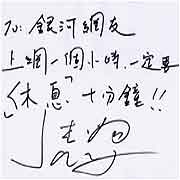 To: 銀河網友
上網一個小時, 一定要
「休息」十分鐘!!